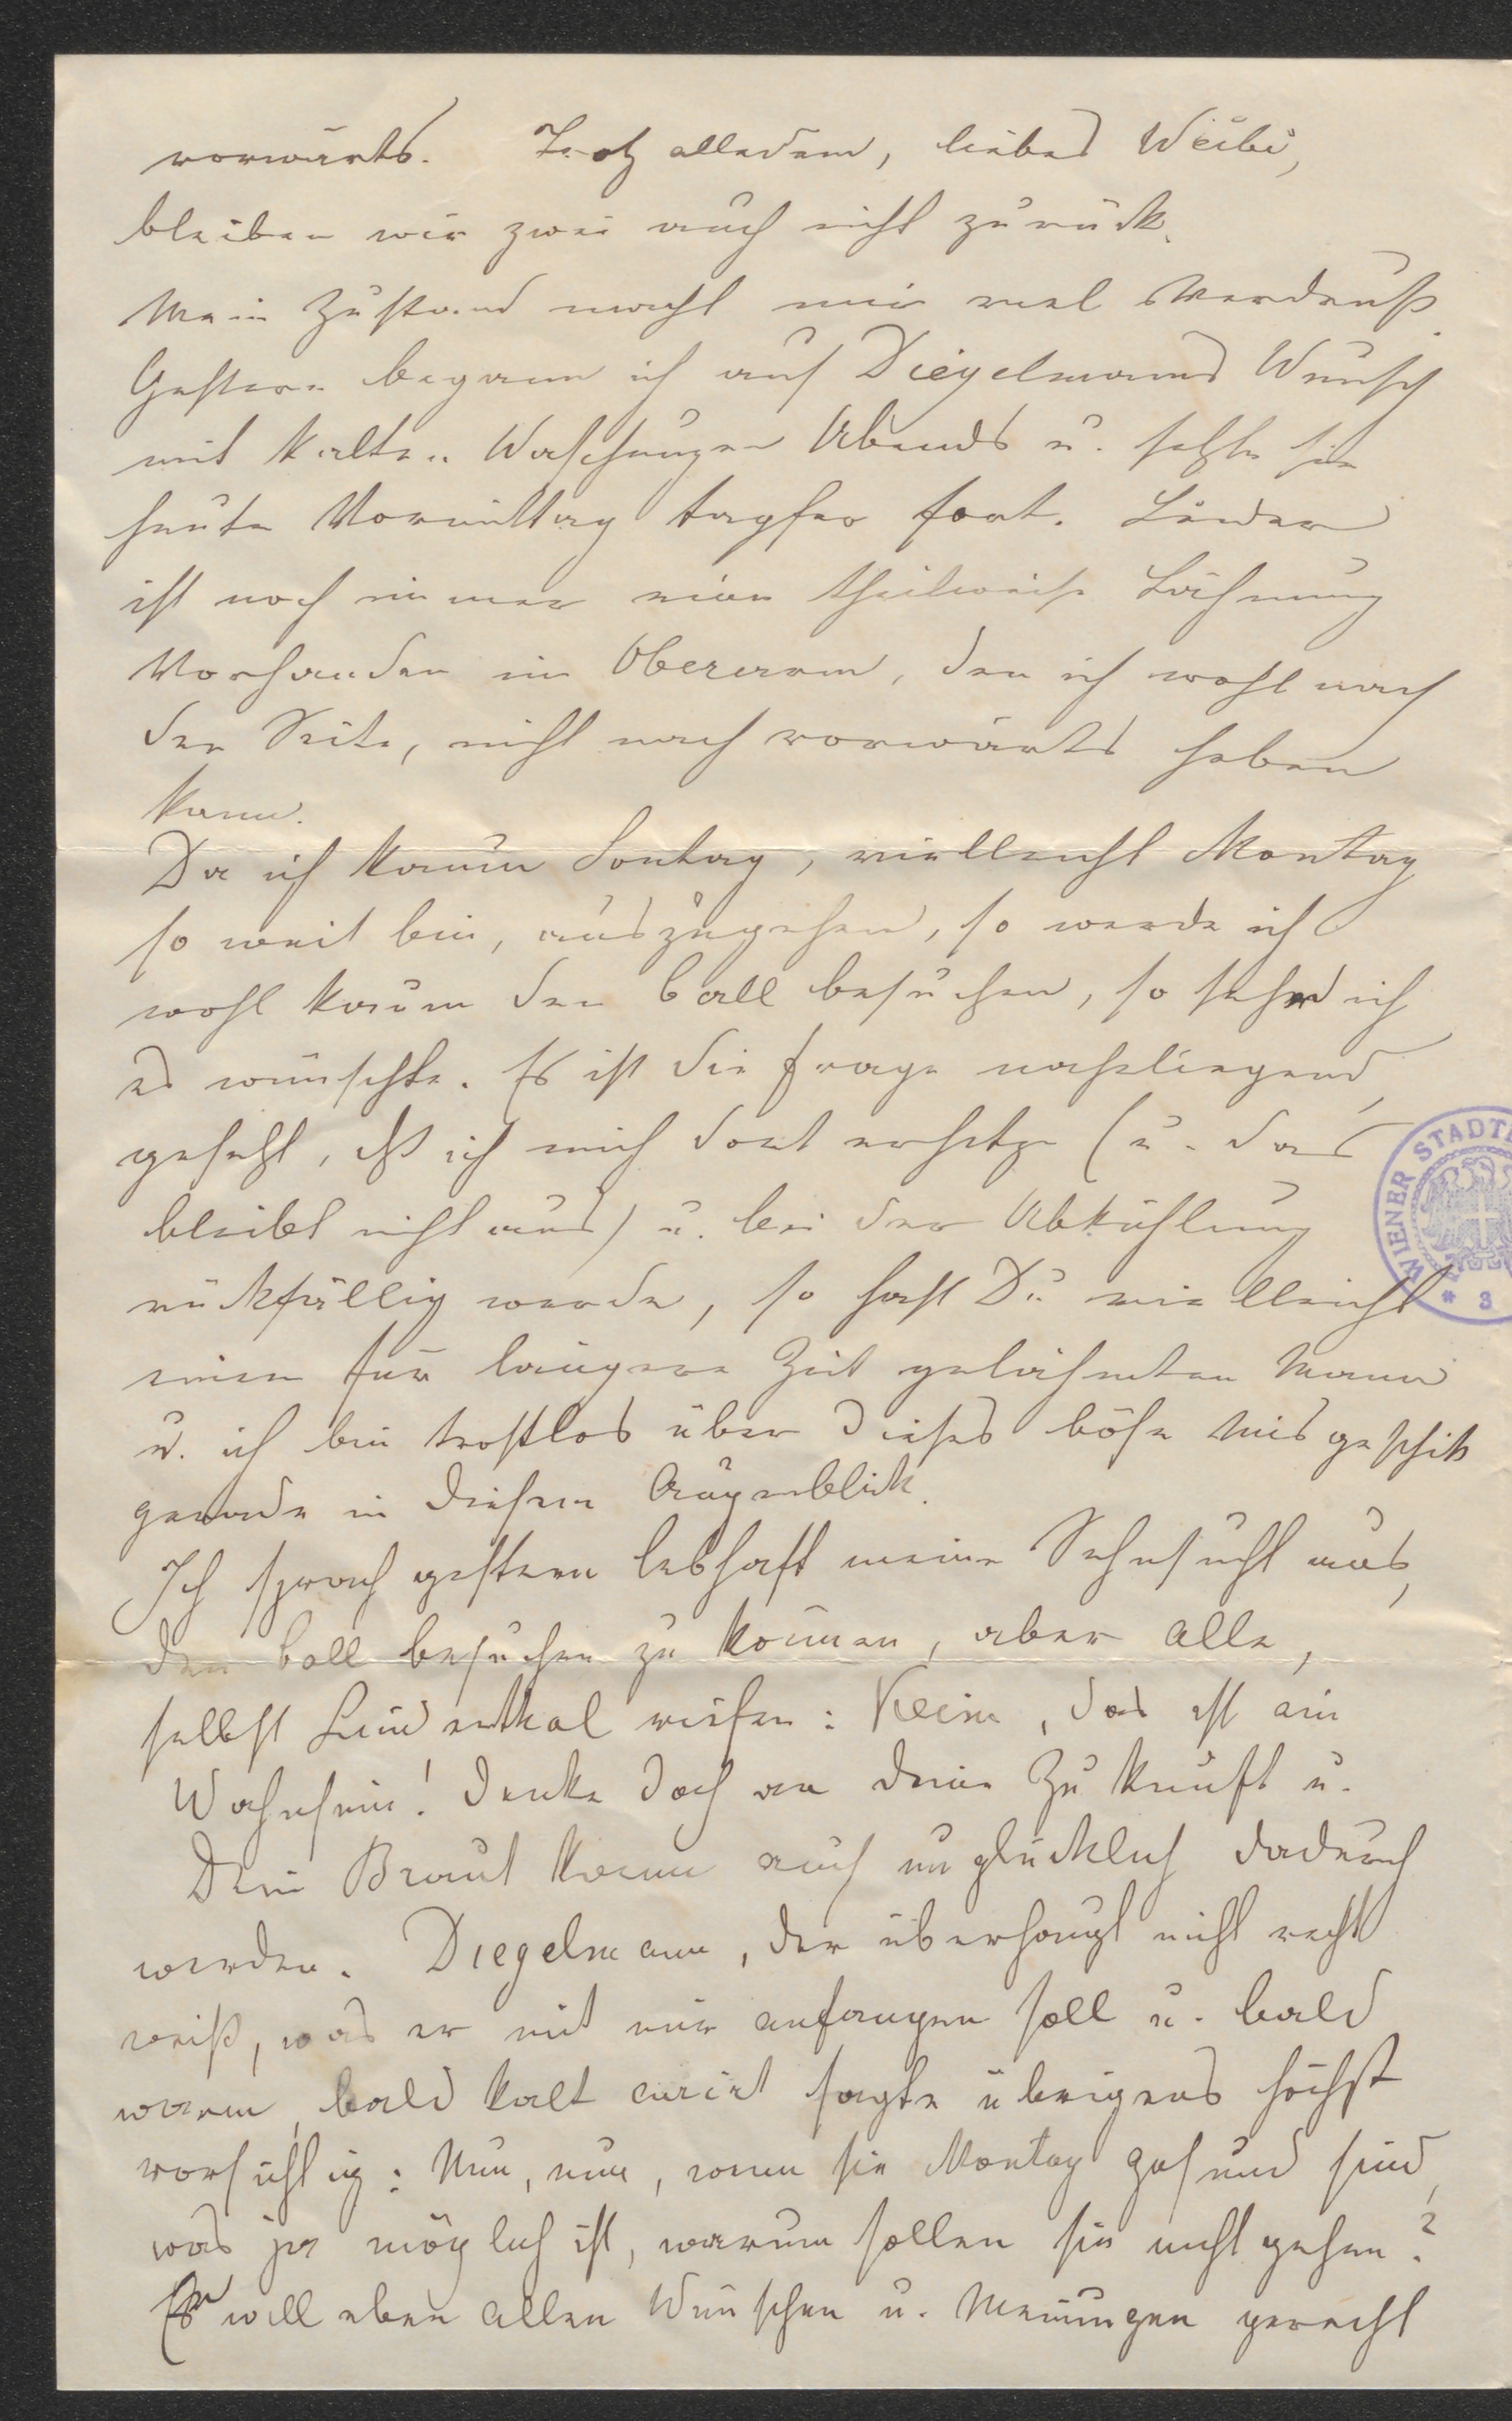 vorwärts. Trotz alledem, liebes Weibi,
bleiben wir zwei auch nicht zurück.
Mein Zustand macht mir viel Verdruß.
Gestern begann ich auf Diegelmanns Wunsch
mit kalten Waschungen Abends u. setzte sie
heute Vormittag tapfer fort. Leider
ist noch immer eine theilweise Lähmung
Vorhanden im Oberarm, den ich wohl nach
der Seite, nicht nach vorwärts heben
kann.
Da ich kaum Sontag, vielleicht Montag
so weit bin, auszugehen, so werde ich
wohl kaum den Ball besuchen, so sehr ich
es wünschte. Es ist die Frage naheliegend
gesetzt, dß ich mich dort erhitze (u. das
bleibt nicht aus) u. bei der Abkühlung
rückfällig werde, so hast Du vielleicht
einen für längere Zeit gelähmten Mann
u. ich bin trostlos über dieses böse Misgeschik
gerade in diesem Augenblick.
Ich sprach gestern lebhaft meine Sehnsucht aus,
den Ball besuchen zu können, aber alle,
selbst Lindenthal riefen: Nein, das ist ein
Wahnsinn! Denke doch an deine Zukunft u.
Dein Braut kann auch unglücklich dadurch
werden. Diegelmann, der überhaupt nicht recht
weiß, was er mit mir anfangen soll u. bald
warm, bald kalt curirt sagte übrigens höchst
vorsichtig: Nun, nun, wenn sie Montag gesund sind,
was ja möglich ist, warum sollen sie nicht gehen?
Er will eben allen Wünschen u. Meinungen gerecht
WIENER STADT
* 3